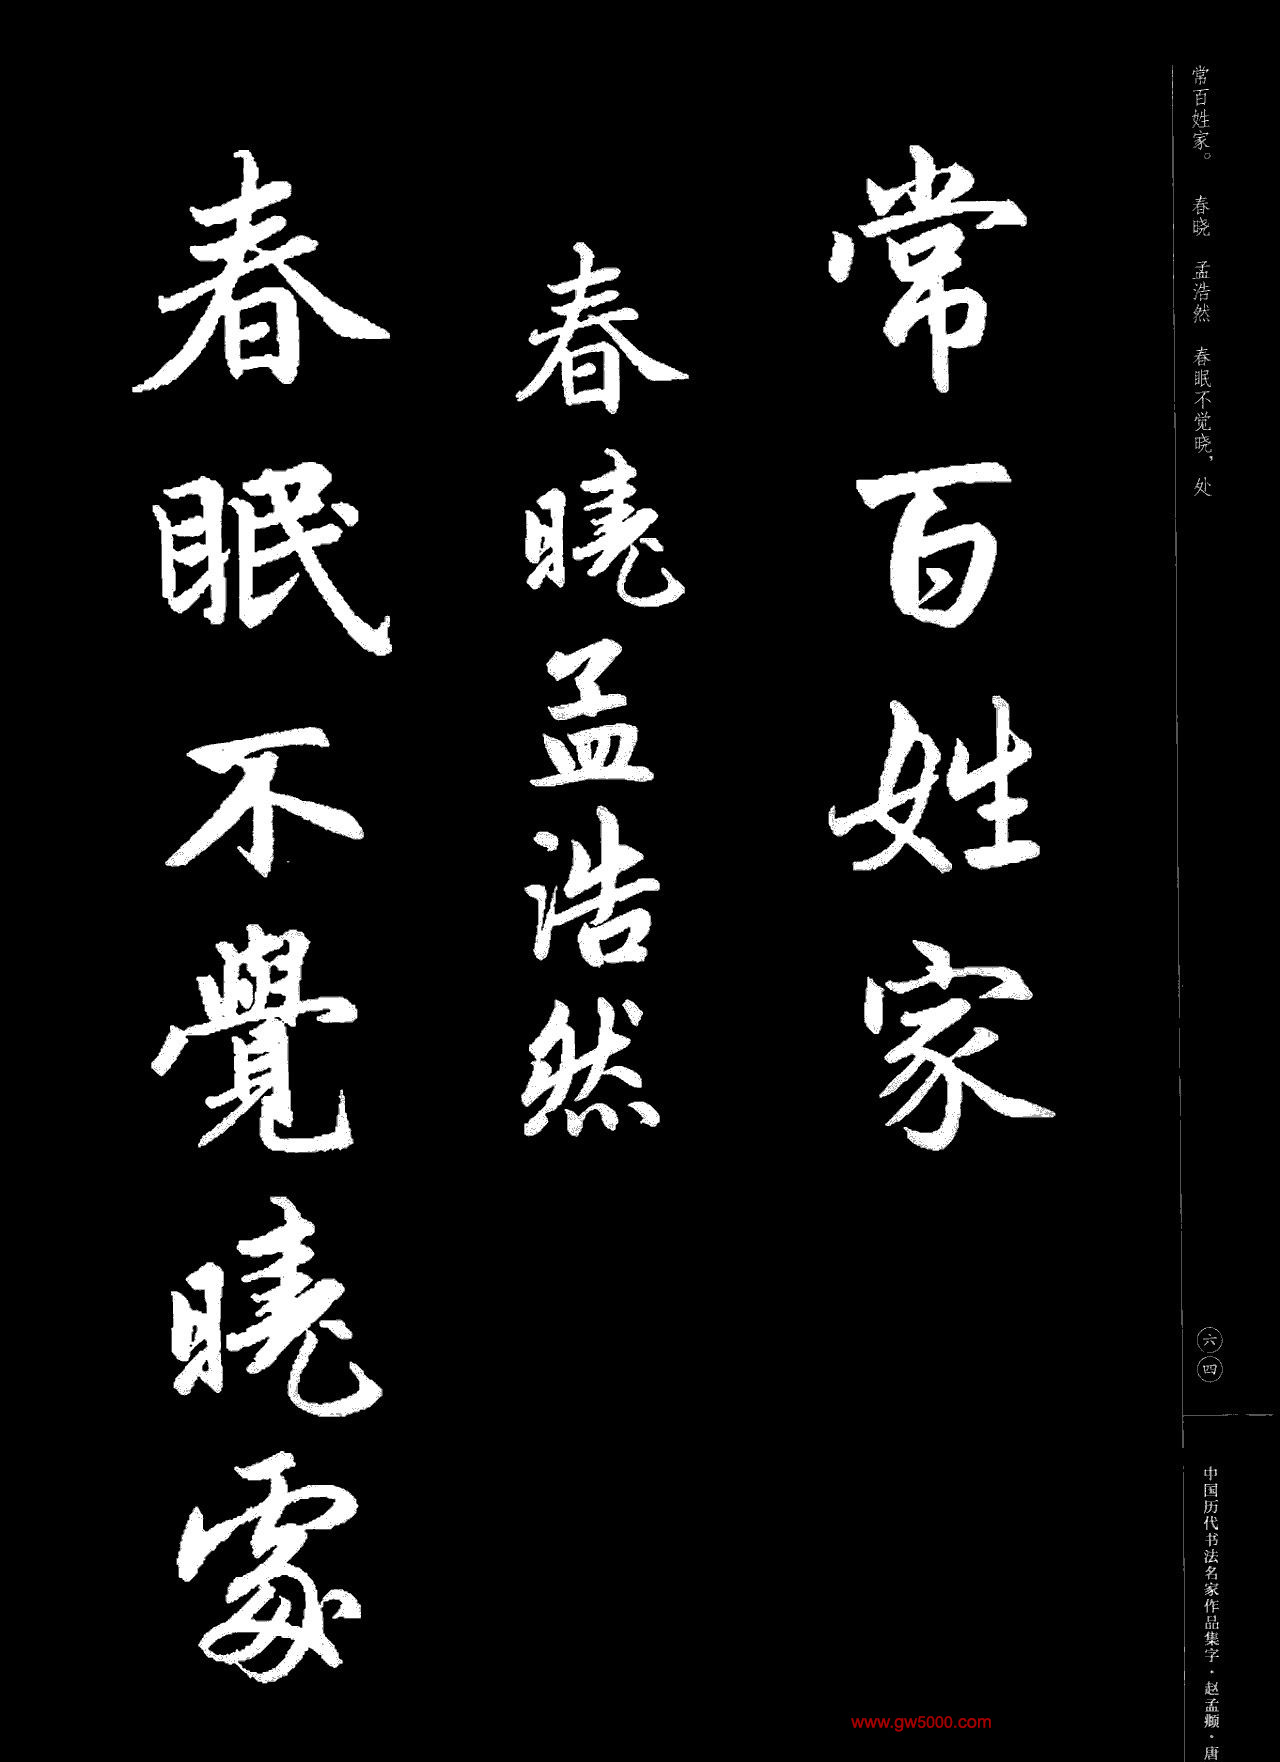 常百姓家。 春晓 孟浩然 春眠不觉晓，处
六四
中国历代书法名家作品集字·赵孟頫·唐
常百姓家
春曉孟浩然
春眠不覺曉處
www.gw5000.com